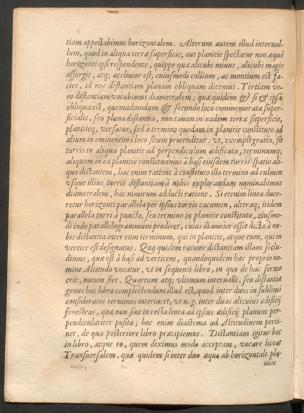 tiam appellabimus horizontalem. Alterum autem illud interual-
lum, quod in aliqua terræ superficie, aut planitie spectatur non æque
horizonti ipsi respondente, quippe quæ alicubi minus, alicubi magis
assurgit, atq; accliuior est, cuiusmodi collium, ac montium est fa-
cies, id nos distantiam planam obliquam dicemus. Tertiam ve-
rò distantiam vocabimus diametralem; quæ quidem & si & ipsa
obliqua est, quemadmodum & secundo loco commemorata super-
ficialis, seu plana distantia, non tamen in eadem terræ superficie,
planitieq; versatur, sed à termino quodam in planitie constituto ad
alium in eminentiori loco situm protenditur. vt, exempli gratia, si
turris in aliqua planitie ad perpendiculum ædificata, terminumq;
aliquem in ea planitie constituamus à basi eiusdem turris spatio ali-
quo distantem, hac enim ratione à constituto illo termino ad culmen
vsque illius turris distantiam à nobis explorandam nominabimus
diametralem, hac nimirum adducti ratione. Si etenim linea duce-
retur horizonti parallela per ipsius turris cacumen, alteraq; itidem
parallela turri à puncto, seu termino in planitie constituto, eiusmo-
di inde parallelogrammum prodiret, cuius diameter esset ducta à no-
bis distantia inter eum terminum, qui in planitie, atque eum, qui in
vertice est designatus. Qua quidem ratione distantiam illam seclu-
dimus, quæ est à basi ad verticem, quandoquidem hæc proprio no-
mine Altitudo vocatur, vt in sequenti libro, in quo de hac sermo
erit, notum fiet. Quartum atq; vltimum interualli, seu distantiæ
genus hoc libro complectendum illud est, quod inter duos in sublimi
consideratos terminos interiacet, vt v. g. inter duas alicuius ædificij
fenestras, quæ non sint in recta linea ad ipsius ædificij planum per-
pendiculariter positæ; hoc enim diastema ad Altitudinem perti-
net, de qua posteriore libro præcipiemus. Distantiam igitur hoc
in libro, atque eo, quem diximus modo acceptam, vocare licet
Transuersalem. quæ quidem si inter duo æqua ab horizontali pla-